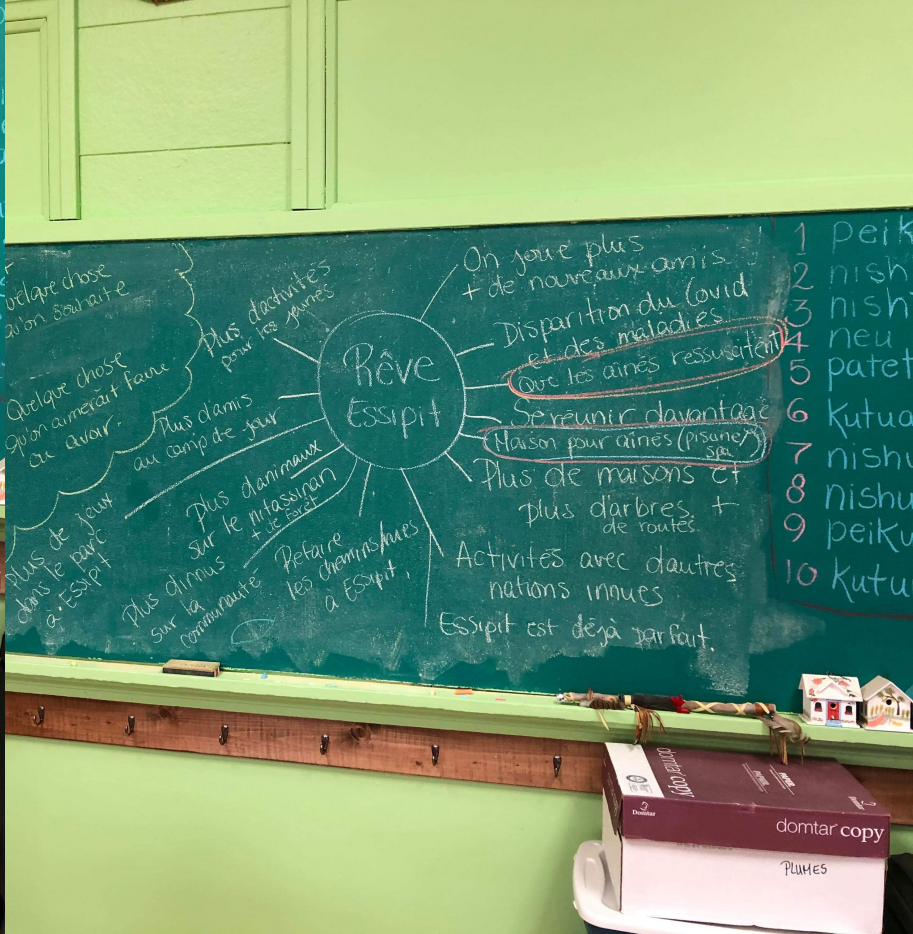 quelque chose
qu'on souhaite
Quelque chose
qu'on aimerait faire
ou avoir.
Plus d'activités
pour les jeunes
Plus d'amis
au camp de jour
plus de jeux
dans le parc
à Essipit
Plus d'animaux
sur le nitassinan
+ de forêt
plus d'innus
sur la
communauté
Refaire
les chemins/rues
à Essipit.
Rêve
Essipit
On joue plus
+ de nouveaux amis
Disparition du Covid
et des maladies
Que les aînés ressuscitent
Se réunir davantage
Maison pour aînés (piscine/
spa
Plus de maisons et
plus d'arbres +
de routes
Activités avec d'autres
nations innues
Essipit est déjà parfait.
1 peik
2 nish
3 nisht
4 neu
5 patet
6 kutua
7 nishu
8 nishu
9 peiku
10 kutu
domtar copy
Domtar
domtar copy
PLUMES